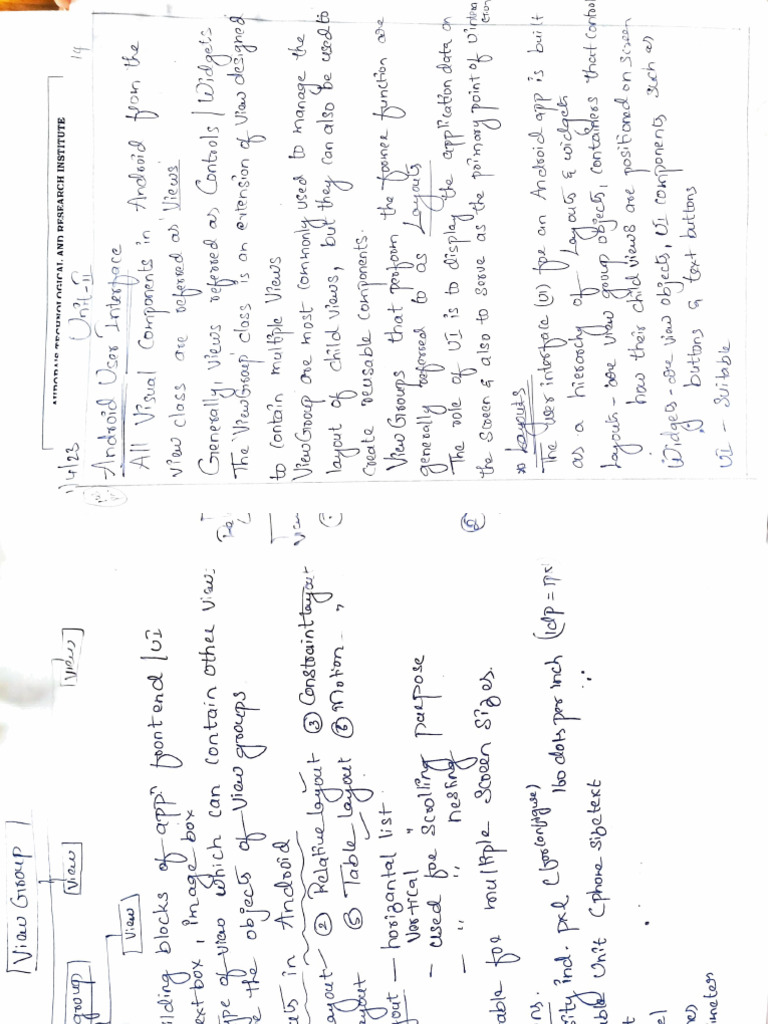 TECHNOLOGICAL AND RESEARCH INSTITUTE
19
1/4/23
Unit-II
Android User Interface
All Visual Components in Android from the
view class are referred as 'Views'
Generally, views referred as Controls / Widgets
The 'ViewGroup' class is an extension of View designed
to contain multiple Views
ViewGroup are most commonly used to manage the
layout of child views, but they can also be used to
create reusable components.
View Groups that perform the former function are
generally referred to as Layouts
The role of UI is to display the application data on
the screen & also to serve as the primary point of
* Layouts
The user interface (UI) for an Android app is built
as a hierarchy of Layouts & widgets
Layouts - are view group objects, containers that control
how their child views are positioned on screen
Widgets - are view objects, UI components such as
buttons & text buttons
UI - Suitable
View Group
View
View
View
group
ilding blocks of app frontend / UI
extbox, image box
ype of view which can contain other views
e the objects of View groups
uts in Android
ayout ② Relative layout ③ Constraint layout
ayout ⑤ Table layout ⑥ Motion "
yout - horizantal list
Vertical "
- used for scrolling purpose
- " " nesting "
able for multiple screen sizes.
ns.
sity ind. pxl 160 dots per inch (1dp = 1px
ble Unit (phone size text
t
el
es
imeters